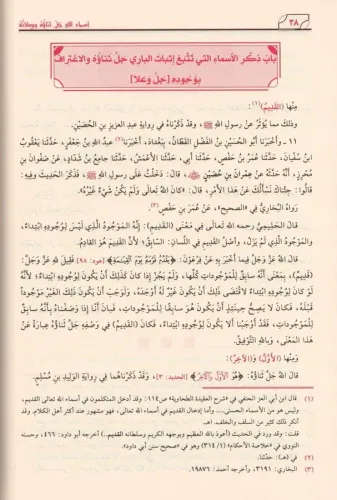 ٣٨
أسماء الله جل ثناؤه وصفاته
باب ذكر الأسماء التي تتبع إثبات الباري جل ثناؤه والاعتراف
بوجوده [جل وعلا]
منها (القديم)(١):
وذلك مما يؤثر عن رسول الله ﷺ، وقد ذكرناه في رواية عبد العزيز بن الحصين.
١١ - وأخبرنا أبو الحسين بن الفضل القطان، ببغداد، أخبرنا(٢) عبد الله بن جعفر، حدثنا يعقوب
ابن سفيان، حدثنا عمر بن حفص، حدثنا أبي، حدثنا الأعمش، حدثنا جامع بن شداد، عن صفوان بن
محرز، أنه حدثه عن عمران بن حصين ﷺ، قال: دخلت على رسول الله ﷺ، فذكر الحديث وفيه:
قالوا: جئناك نسألك عن هذا الأمر، قال: «كان الله تعالى ولم يكن شيء غيره».
رواه البخاري في «الصحيح»، عن عمر بن حفص(٣).
قال الحليمي رحمه الله تعالى في معنى (القديم): إنه الموجود الذي ليس لوجوده ابتداء،
والموجود الذي لم يزل، وأصل القديم في اللسان: السابق؛ لأن القديم هو القادم.
قال الله عز وجل فيما أخبر به عن فرعون: ﴿يقدم قومه يوم القيامة﴾ [هود: ٩٨] فقيل لله عز وجل:
(قديم)، بمعنى أنه سابق للموجودات كلها، ولم يجز إذا كان كذلك أن يكون لوجوده ابتداء؛ لأنه
لو كان لوجوده ابتداء لاقتضى ذلك أن يكون غير له أوجده، ولوجب أن يكون ذلك الغير موجودا
قبله، فكان لا يصح حينئذ أن يكون هو سابقا للموجودات، فبان أنا إذا وصفناه بأنه سابق
للموجودات، فقد أوجبنا ألا يكون لوجوده ابتداء، فكان (القديم) في وصفه جل ثناؤه عبارة عن
هذا المعنى، وبالله التوفيق.
ومنها (الأول) و(الآخر):
قال الله جل ثناؤه: ﴿هو الأول والآخر﴾ [الحديد: ٣]، وقد ذكرناهما في رواية الوليد بن مسلم.
(١) قال ابن أبي العز الحنفي في «شرح العقيدة الطحاوية» ص١١٤: وقد أدخل المتكلمون في أسماء الله تعالى القديم،
وليس هو من الأسماء الحسنى... وأما إدخال القديم في أسماء الله تعالى، فهو مشهور عند أكثر أهل الكلام. وقد
أنكر ذلك كثير من السلف والخلف.اهـ
قلت: وقد ورد في الحديث (أعوذ بالله العظيم وبوجهه الكريم وسلطانه القديم..) أخرجه أبو داود: ٤٦٦، وحسنه
النووي في «خلاصة الأحكام» (١/ ٣١٤) وهو في «صحيح سنن أبي داود».
(٢) في (هـ): حدثنا.
(٣) البخاري: ٣١٩١، وأخرجه أحمد: ١٩٨٧٦.